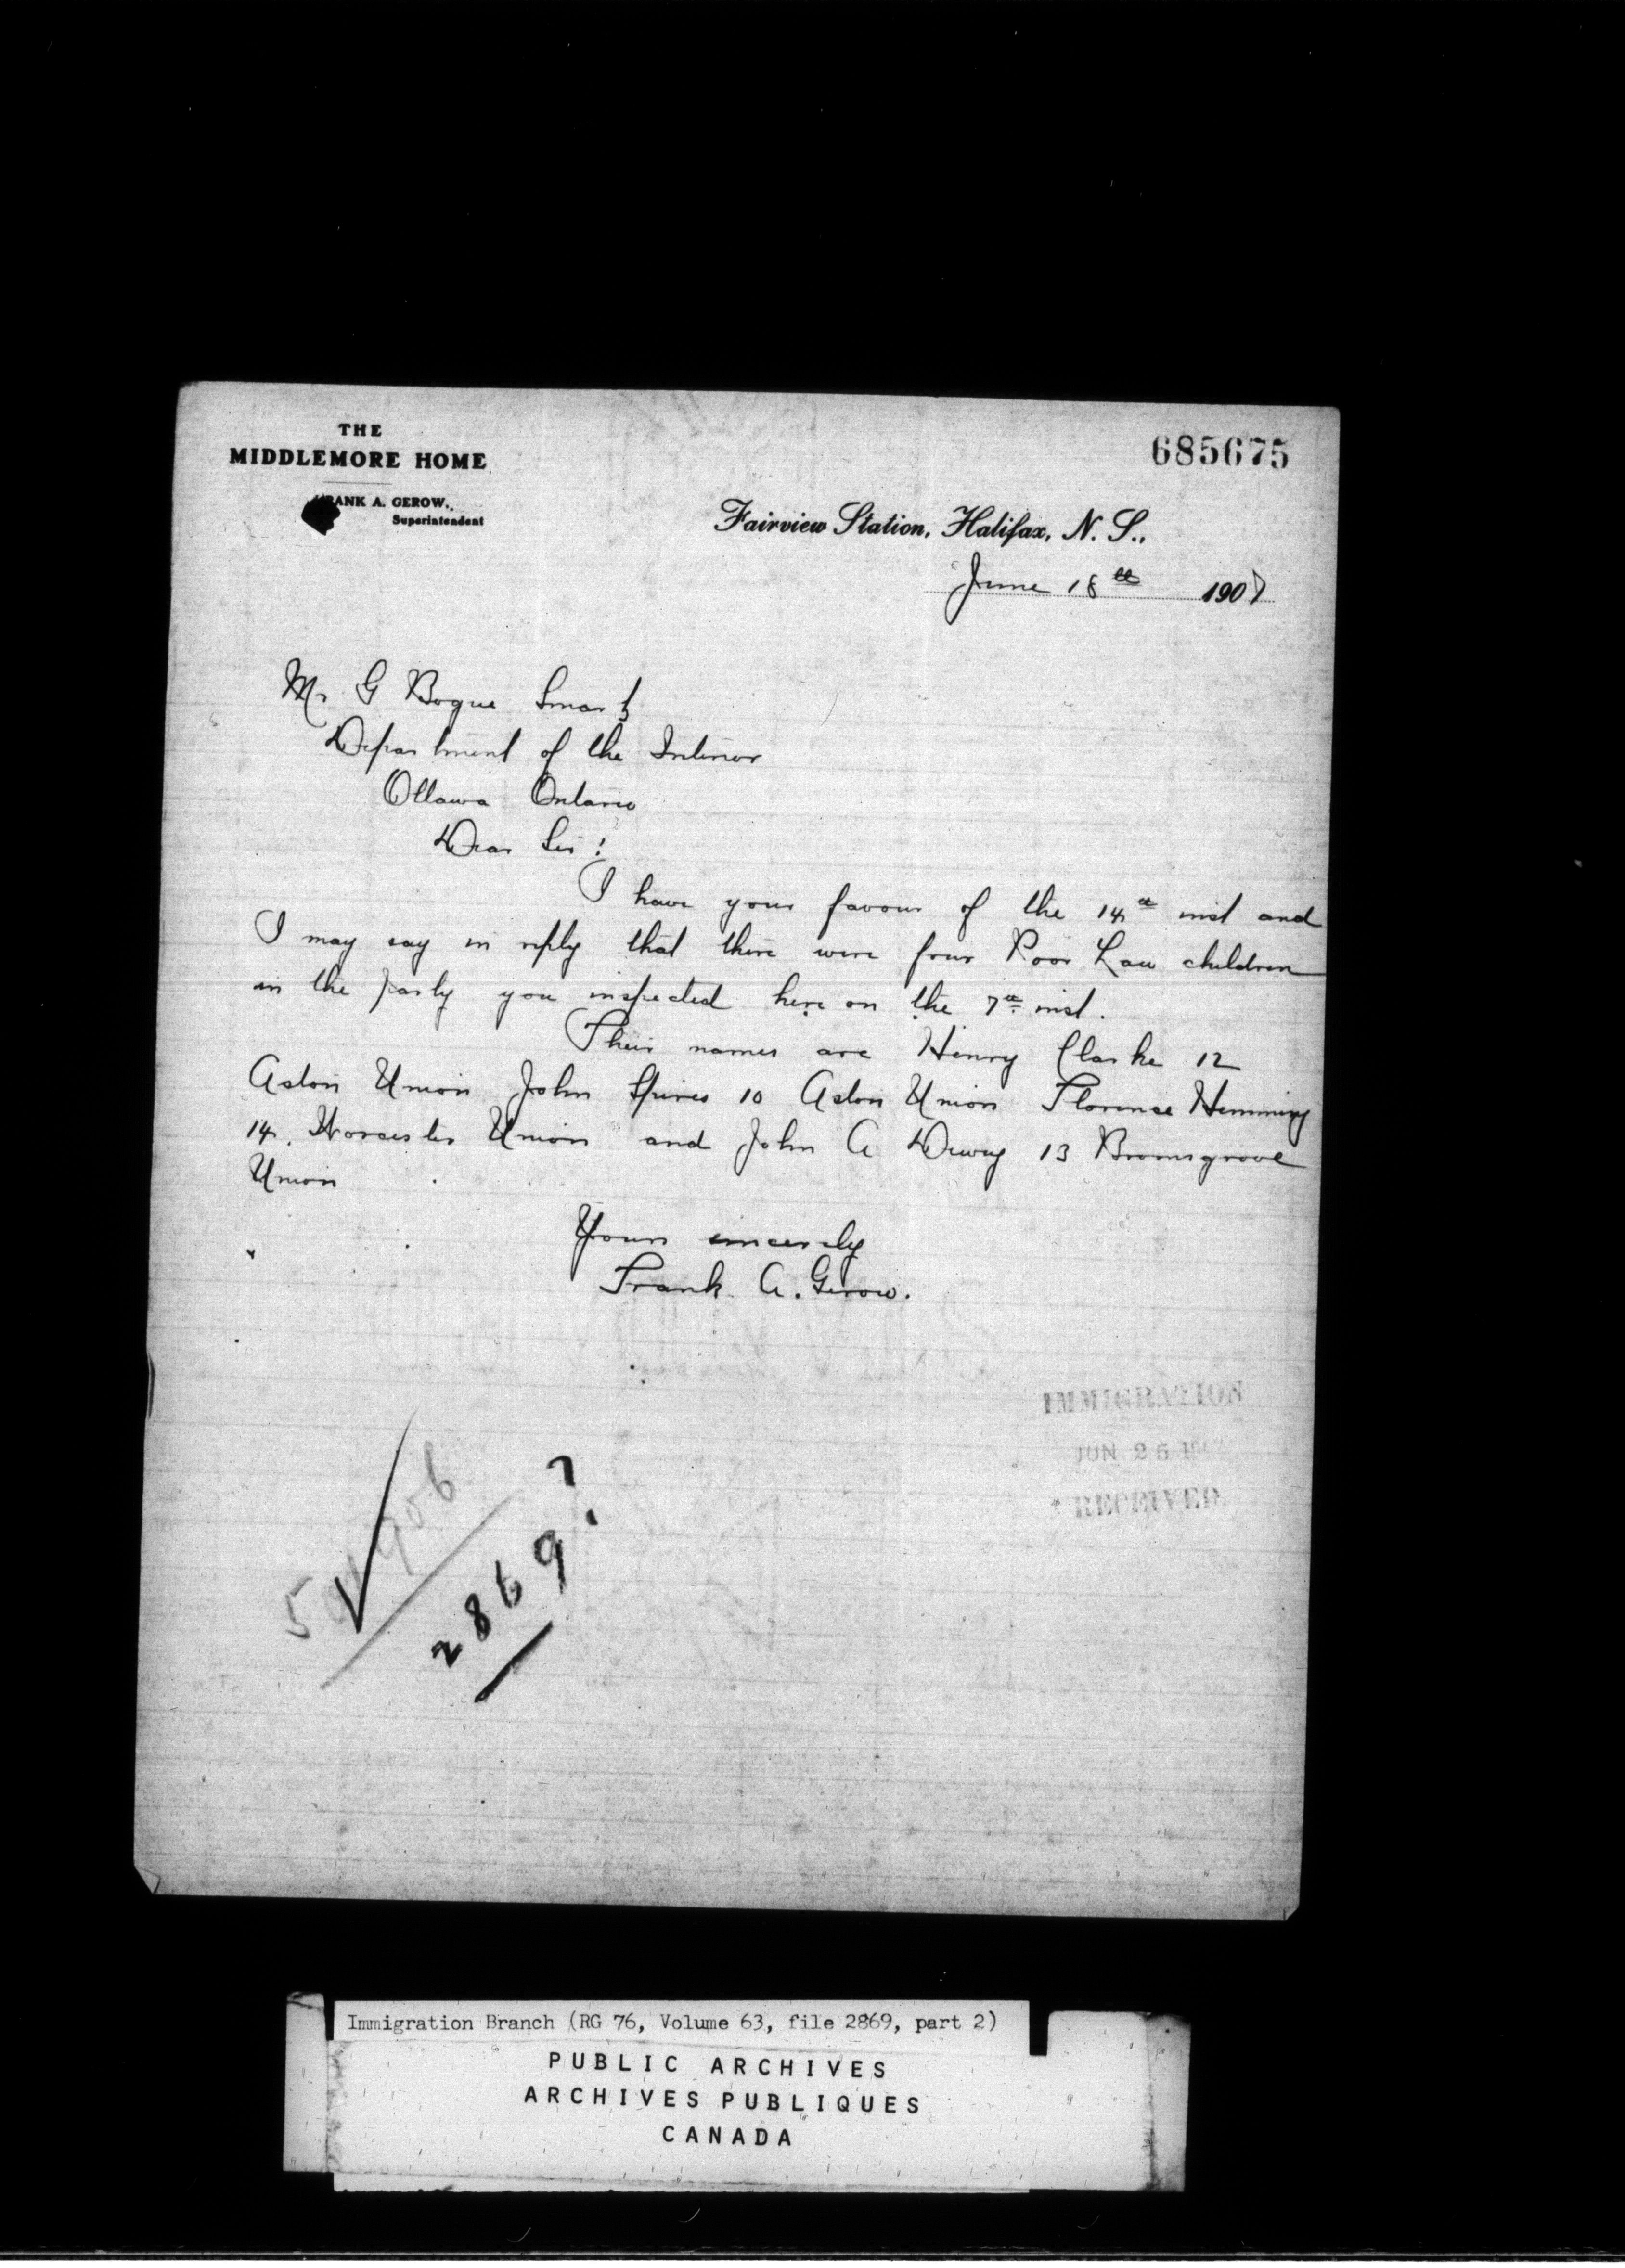 THE
MIDDLEMORE HOME
685675
RANK A. GEROW,
Superintendent
Fairview Station, Halifax, N. S.,
June 18th 1907
Mr G Bogue Smart
Department of the Interior
Ottawa Ontario
Dear Sir!
I have your favour of the 14th inst and
I may say in reply that there were four Poor Law children
in the party you inspected here on the 7th inst.
Their names are Henry Clarke 12
Aston Union John Spires 10 Aston Union Florence Hemming
14. Worcester Union and John A Dewey 13 Bromsgrove
Union
Yours sincerely
Frank A. Gerow.
IMMIGRATION
JUN 25 1907
RECEIVED
2869?
Immigration Branch (RG 76, Volume 63, file 2869, part 2)
PUBLIC ARCHIVES
ARCHIVES PUBLIQUES
CANADA